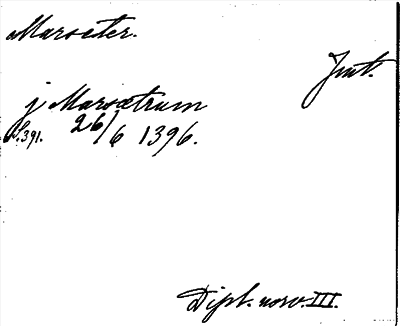 Marseter.
Jmt.
j Marsætrum
S. 391. 26/6 1396.
Dipl. norv. III.